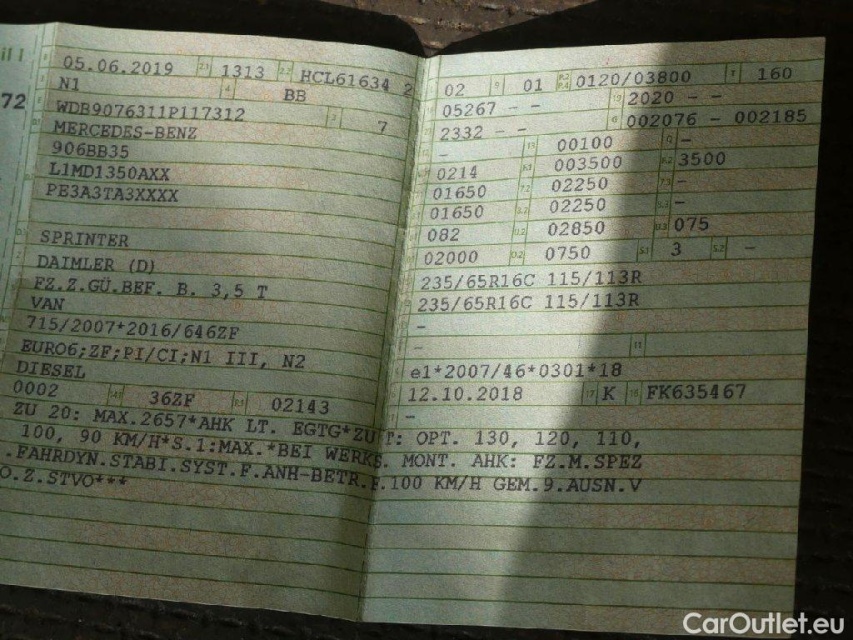 il I
05.06.2019 2.1 1313 2.2 HCL61634 2
72
N1 4 BB
WDB9076311P117312 3 7
MERCEDES-BENZ
906BB35
L1MD1350AXX
PE3A3TA3XXXX
SPRINTER
DAIMLER (D)
FZ.Z.GÜ.BEF. B. 3,5 T
VAN
715/2007*2016/646ZF
EURO6;ZF;PI/CI;N1 III, N2
DIESEL
0002 36ZF 02143
02 9 01 P.2 P.4 0120/03800 T 160
05267 - - 19 2020 - -
2332 - - G 002076 - 002185
- 13 00100 Q -
0214 003500 3500
01650 7.2 02250 7.3 -
01650 8.2 02250 8.3 -
082 02850 075
02000 0750 S.1 3 S.2 -
235/65R16C 115/113R
235/65R16C 115/113R
-
11
e1*2007/46*0301*18
12.10.2018 17 K 16 FK635467
-
ZU 20: MAX.2657*AHK LT. EGTG*ZU T: OPT. 130, 120, 110,
100, 90 KM/H*S.1:MAX.*BEI WERKS. MONT. AHK: FZ.M.SPEZ
.FAHRDYN.STABI.SYST.F.ANH-BETR.F.100 KM/H GEM.9.AUSN.V
O.Z.STVO***
CarOutlet.eu